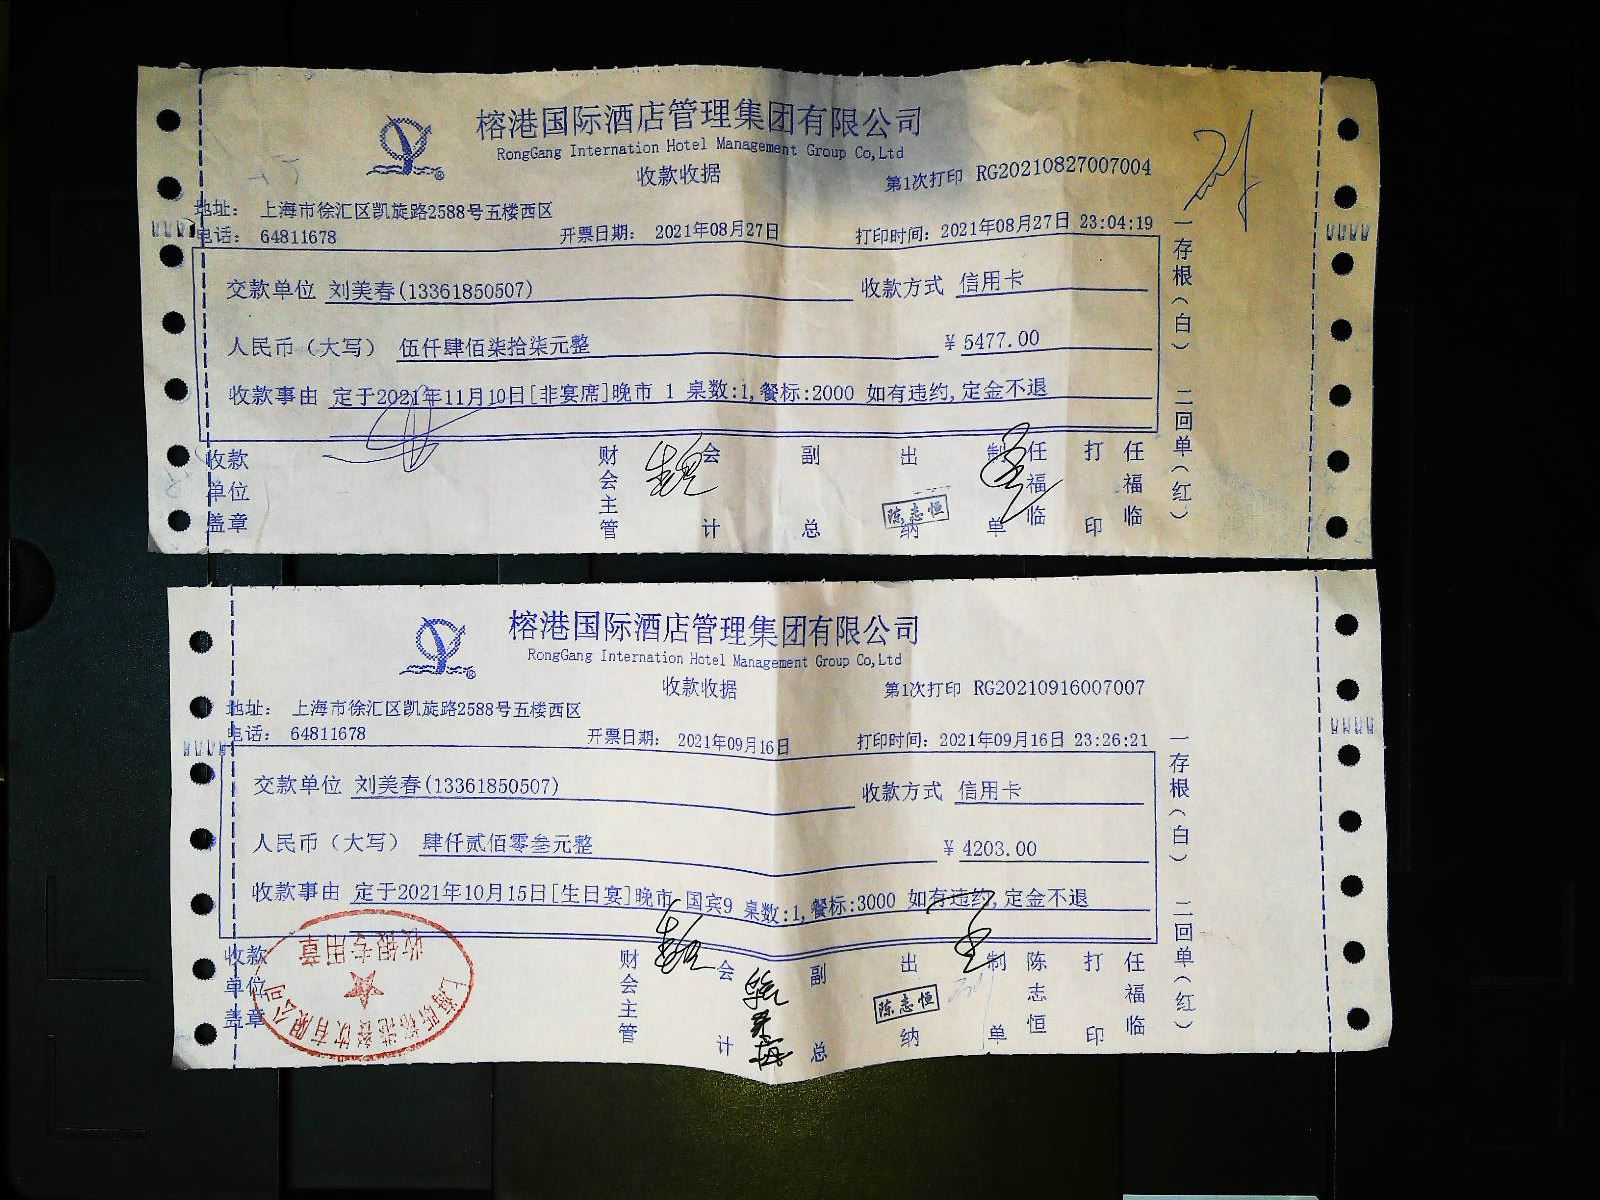 榕港国际酒店管理集团有限公司
RongGang Internation Hotel Management Group Co,Ltd
收款收据
第1次打印 RG20210827007004
地址： 上海市徐汇区凯旋路2588号五楼西区
电话： 64811678 开票日期： 2021年08月27日 打印时间：2021年08月27日 23:04:19
交款单位 刘美春(13361850507) 收款方式 信用卡
人民币（大写） 伍仟肆佰柒拾柒元整 ￥5477.00
收款事由 定于2021年11月10日[非宴席]晚市 1 桌数:1,餐标:2000 如有违约,定金不退
收款单位盖章 财会主管 会计 副总 出纳 陈志恒 制单 任福临 打印 任福临
一存根（白） 二回单（红）
榕港国际酒店管理集团有限公司
RongGang Internation Hotel Management Group Co,Ltd
收款收据
第1次打印 RG20210916007007
地址： 上海市徐汇区凯旋路2588号五楼西区
电话： 64811678 开票日期： 2021年09月16日 打印时间：2021年09月16日 23:26:21
交款单位 刘美春(13361850507) 收款方式 信用卡
人民币（大写） 肆仟贰佰零叁元整 ￥4203.00
收款事由 定于2021年10月15日[生日宴]晚市 国宾9 桌数:1,餐标:3000 如有违约,定金不退
收款单位盖章 财会主管 会计 副总 出纳 陈志恒 制单 陈志恒 打印 任福临
一存根（白） 二回单（红）
收银专用章